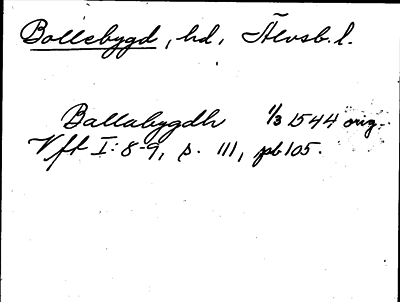 Bollebygd, hd, Älvsb. l.
Ballabygdh 1/3 1544 orig.
Vft I: 8-9, s. 111, pb 105.